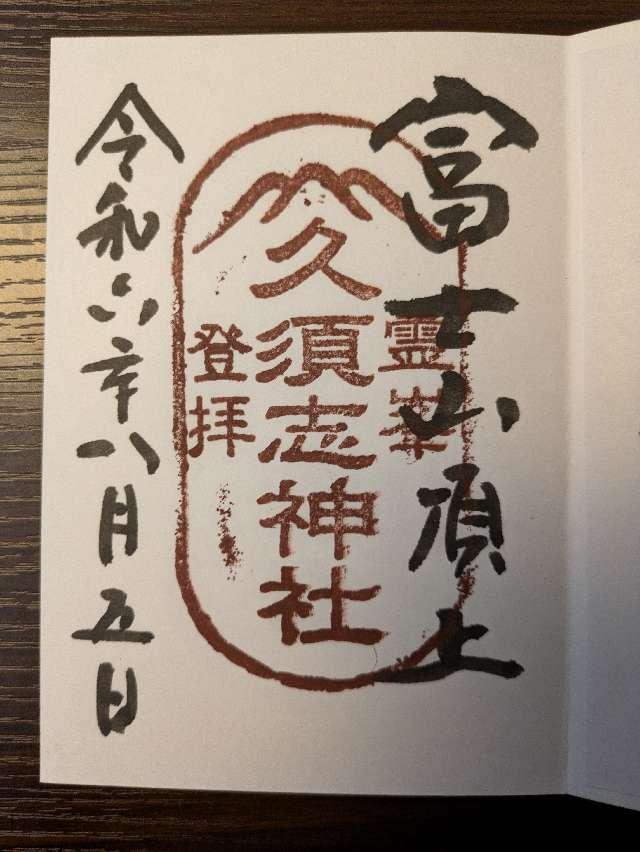 富士山頂上
霊峯
久須志神社
登拝
令和六年八月五日